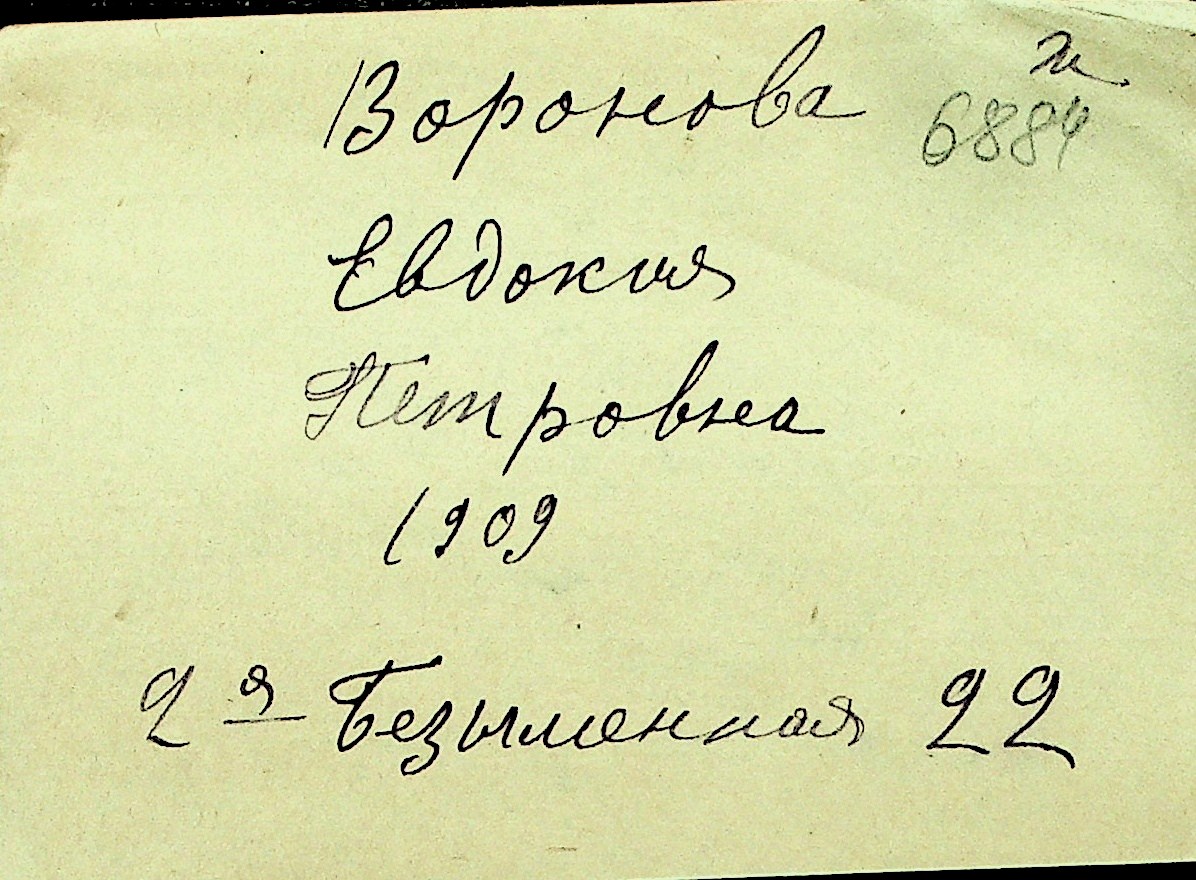 Воронова
6884
Евдокия
Петровна
1909
2я Безыменная 22